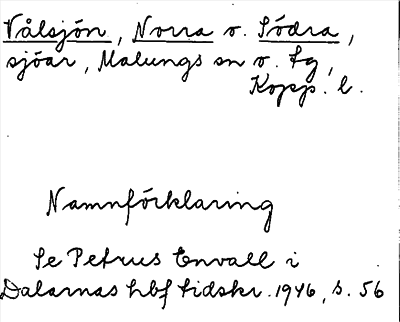 Vålsjön, Norra o. Södra,
sjöar, Malungs sn o. tg,
Kopp. l.
Namnförklaring
Se Petrus Envall i
Dalarnas hbf tidskr. 1946, s. 56